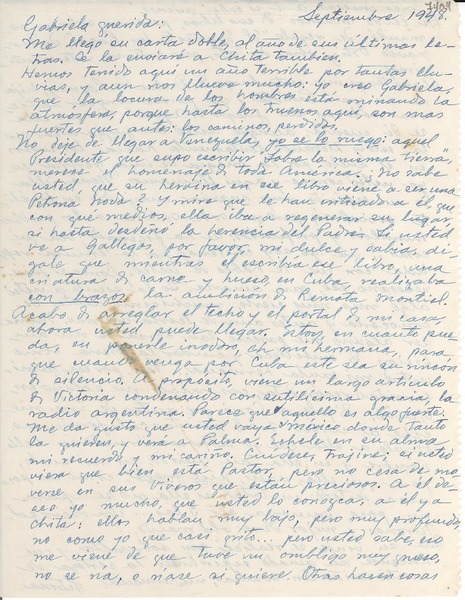 7404
Gabriela querida: Septiembre 1948.
Me llegó su carta doble, al año de sus últimas le-
tras. Se la enviaré a Chita tambien.
Hemos tenido aquí un año terrible por tantas llu-
vias, y aun nos llueve mucho: yo creo Gabriela,
que la locura de los hombres está minando la
atmósfera, porque hasta los truenos aquí, son mas
fuertes que antes: los caminos, perdidos.
No, deje de llegar a Venezuela, yo se lo ruego: aquel
Presidente que supo escribir "Sobre la misma tierra",
merece el homenaje de toda America. ¿No sabe
usted, que su heroina en ese libro viene a ser una
Petrona Noda? Y mire que le han criticado a él, que
con qué medios, ella iba a regenerar su lugar
si hasta desdeñó la herencia del Padre. Si usted
ve a Gallegos, por favor, mi dulce y sabia, dí-
gale que mientras el escribía ese libro, una
criatura de carne y hueso, en Cuba, realizaba
con brazos, la ambicion de Remota Montiel.
Acabo de arreglar el techo y el portal de mi casa,
ahora usted puede llegar. Estoy, en cuanto pue-
da, en ponerle inodoro, eh, mi hermana, para
que cuando venga por Cuba este sea su rincón
de silencio. A propósito, viene un largo artículo
de Victoria condenando con sutilísima gracia, la
radio argentina. Parece que aquello es algo fuerte.
Me da gusto que usted vaya a México donde tanto
la quieren, y verá a Palma. Échele en su alma
mi recuerdo y mi cariño. Cuídese, trajine; si usted
viera que bien está Pastor, pero no cesa de mo-
verse en sus Viveros que están preciosos. A él de-
seo yo mucho, que usted lo conozca; a él y a
Chita: ellos hablan muy bajo, pero muy profundo,
no como yo que casi grito... pero usted sabe, eso
me viene de que tuve un ombligo muy grueso,
no se ría, o ríase si quiere. Otras hacen cosas